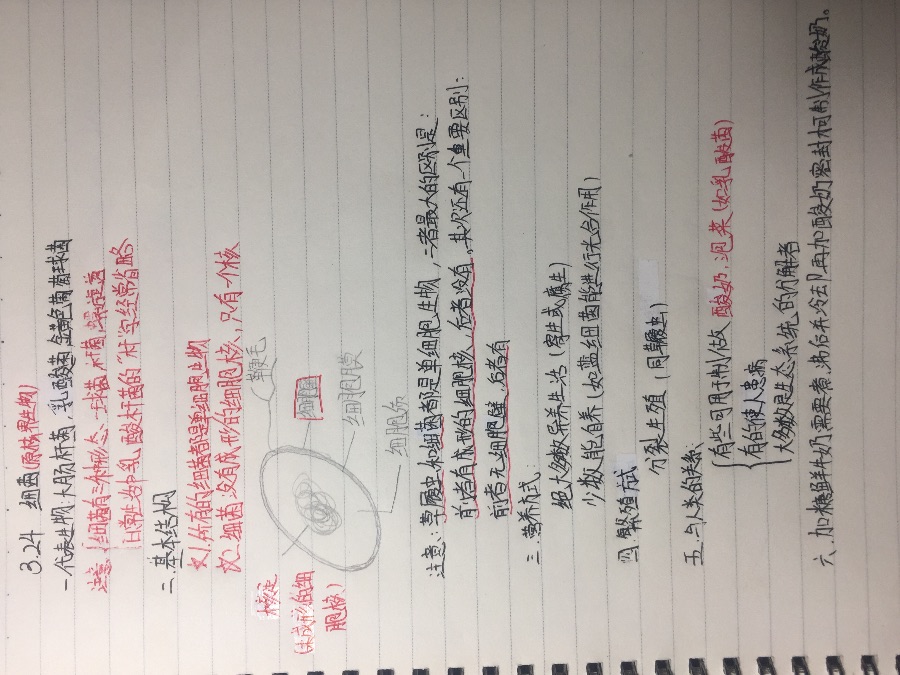 3.24 细菌(原核界生物)
一.代表生物:大肠杆菌,乳酸菌 金黄色葡萄球菌
注意 细菌有三种形态、球菌,杆菌,螺旋菌
日常生活中乳酸杆菌的"杆"字经常省略
二.基本结构
1.所有的细菌都是单细胞生物
2.细菌没有成形的细胞核,只有一个核
核区
(未成形的细
胞核)
鞭毛
细胞壁
细胞膜
细胞质
注意:草履虫和细菌都是单细胞生物,二者最大的区别是:
前者有成形的细胞核,后者没有,其次还有一个重要区别:
前者无细胞壁,后者有
三.营养方式:
绝大多数异养生活(寄生或腐生)
少数能自养(如蓝细菌能进行光合作用)
四.繁殖方式
分裂生殖(同草履虫)
五.与人类的关系:
有些可用于制做 酸奶.泡菜(如乳酸菌)
有的使人患病
大多数是生态系统的分解者
六.加糖鲜牛奶需要煮沸后并冷却再加酸奶密封可制作成酸奶。